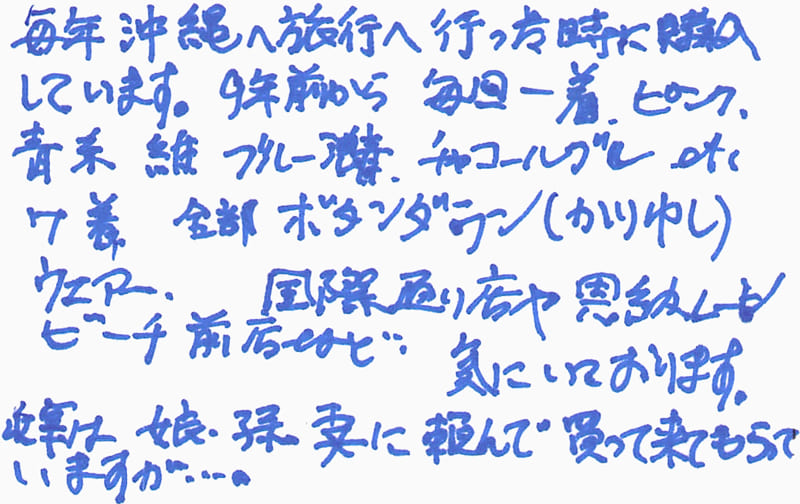 毎年沖縄へ旅行へ行った時に購入
しています。9年前から 毎回一着、ピンク、
青系 維 ブルー 濃春、チャコールグレ etc
7着 全部 ボタンダウン(かりゆし)
ウェアー、 国際通り店や 恩納ムーン
ビーチ前店など、
気にいっております。
は 娘・孫・妻に 頼んで 買って来てもらって
いますが…。